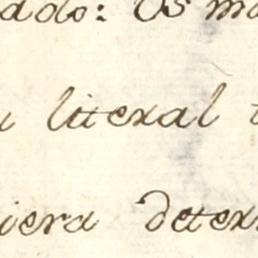 dado: Os ma
literal
iera deter